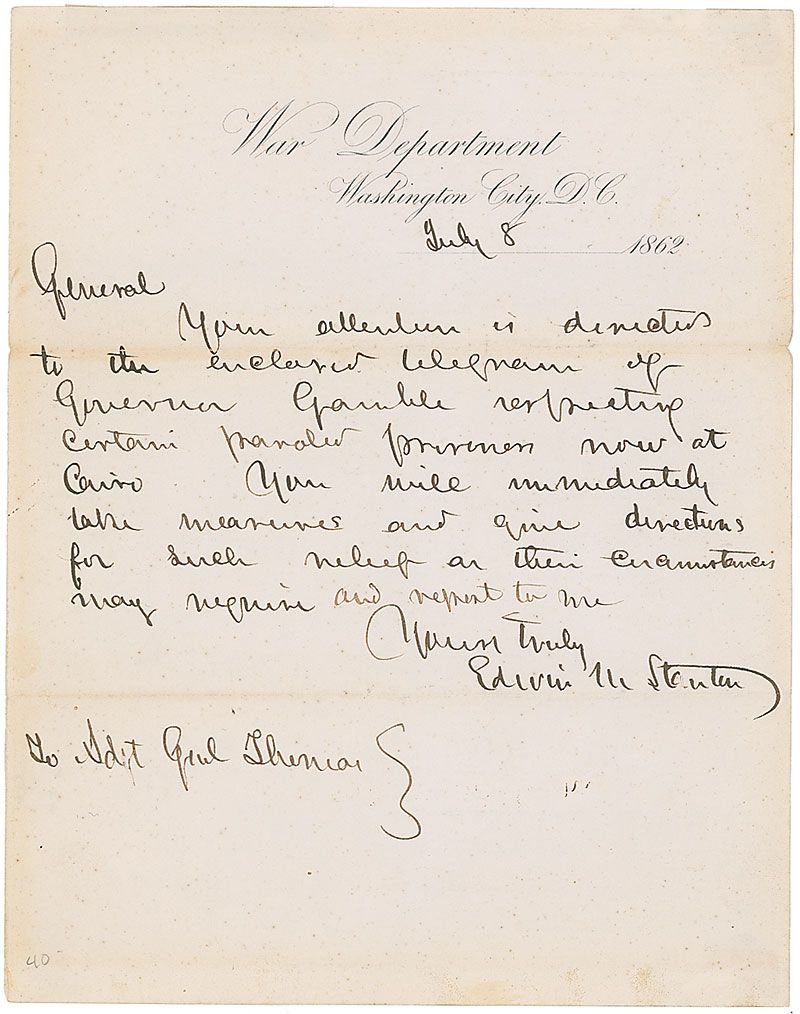 War Department
Washington City, D.C.
July 8 1862
General
Your attention is directed
to the enclosed telegram of
Governor Gamble respecting
certain paroled prisoners now at
Cairo You will immediately
take measures and give directions
for such relief as their circumstances
may require and report to me
Yours truly
Edwin M Stanton
To Adjt Genl Thomas
40